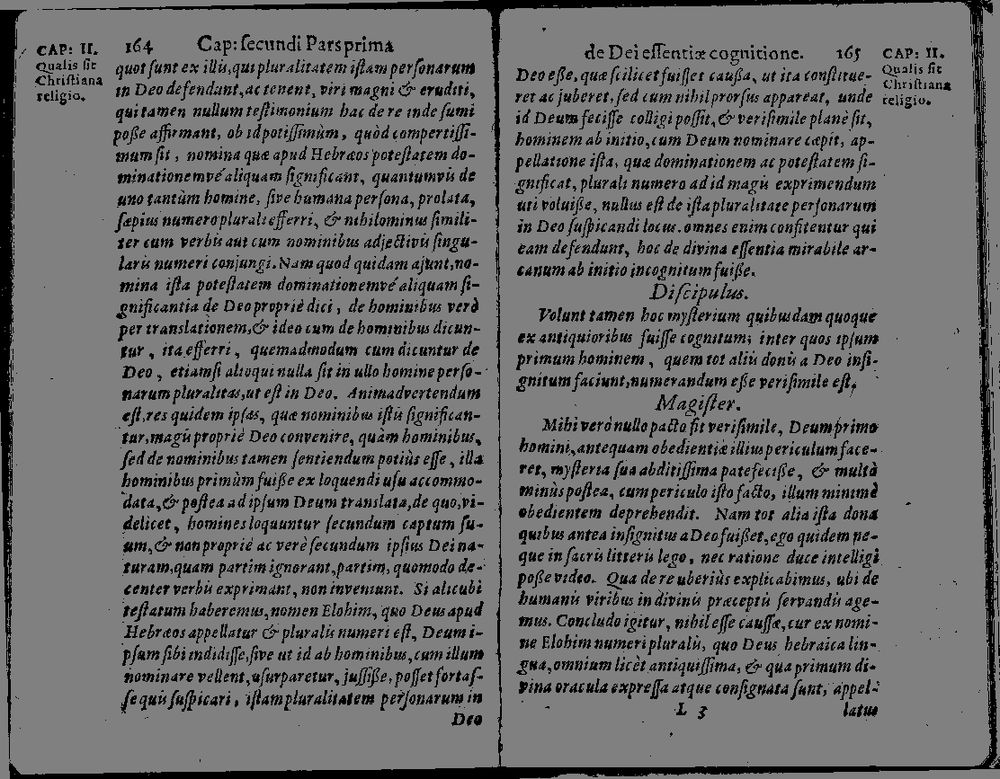 CAP: II.
Qualis sit
Christiana
religio.
164 Cap: secundi Pars prima
quot sunt ex illis, qui pluralitatem istam personarum
in Deo defendunt, ac tenent, viri magni & eruditi,
qui tamen nullum testimonium hac de re inde sumi
posse affirmant, ob id potissimùm, quòd compertissi-
mum sit, nomina quæ apud Hebræos potestatem do-
minationemvè aliquam significant, quantumvis de
uno tantùm homine, sive humana persona, prolata,
sæpius numero plurali efferri, & nihilominus simili-
ter cum verbis aut cum nominibus adjectivis singu-
laris numeri conjungi. Nam quod quidam ajunt, no-
mina ista potestatem dominationemvè aliquam si-
gnificantia de Deo propriè dici, de hominibus verò
per translationem, & ideo cum de hominibus dicun-
tur, ita efferri, quemadmodum cum dicuntur de
Deo, etiamsi alioqui nulla sit in ullo homine perso-
narum pluralitas, ut est in Deo. Animadvertendum
est, res quidem ipsas, quæ nominibus istis significan-
tur, magis propriè Deo convenire, quàm hominibus,
sed de nominibus tamen sentiendum potiùs esse, illa
hominibus primùm fuisse ex loquendi usu accommo-
data, & postea ad ipsum Deum translata, de quo, vi-
delicet, homines loquuntur secundum captum su-
um, & non propriè ac verè secundum ipsius Dei na-
turam, quam partim ignorant, partim, quomodo de-
center verbis exprimant, non inveniunt. Si alicubi
testatum haberemus, nomen Elohim, quo Deus apud
Hebræos appellatur & pluralis numeri est, Deum i-
psum sibi indidisse, sive ut id ab hominibus, cum illum
nominare vellent, usurparetur, jussisse, posset fortas-
se quis suspicari, istam pluralitatem personarum in
Deo
de Dei essentiæ cognitione. 165
CAP: II.
Qualis sit
Christiana
religio.
Deo esse, quæ scilicet fuisset caussa, ut ita constitue-
ret ac juberet, sed cum nihil prorsus appareat, unde
id Deum fecisse colligi possit, & verisimile planè sit,
hominem ab initio, cum Deum nominare cæpit, ap-
pellatione ista, quæ dominationem ac potestatem si-
gnificat, plurali numero ad id magis exprimendum
uti voluisse, nullus est de ista pluralitate personarum
in Deo suspicandi locus. omnes enim confitentur qui
eam defendunt, hoc de divina essentia mirabile ar-
canum ab initio incognitum fuisse.
Discipulus.
Volunt tamen hoc mysterium quibusdam quoque
ex antiquioribus fuisse cognitum; inter quos ipsum
primum hominem, quem tot aliis donis a Deo insi-
gnitum faciunt, numerandum esse verisimile est.
Magister.
Mihi verò nullo pacto fit verisimile, Deum primo
homini, antequam obedientiæ illius periculum face-
ret, mysteria sua abditissima patefecisse, & multò
minùs postea, cum periculo isto facto, illum minimè
obedientem deprehendit. Nam tot alia ista dona
quibus antea insignitus a Deo fuisset, ego quidem ne-
que in sacris litteris lego, nec ratione duce intelligi
posse video. Qua de re uberiùs explicabimus, ubi de
humanis viribus in divinis præceptis servandis age-
mus. Concludo igitur, nihil esse caussæ, cur ex nomi-
ne Elohim numeri pluralis, quo Deus hebraica lin-
gua, omnium licèt antiquissima, & qua primum di-
vina oracula expressa atque consignata sunt, appel-
L 3 latus